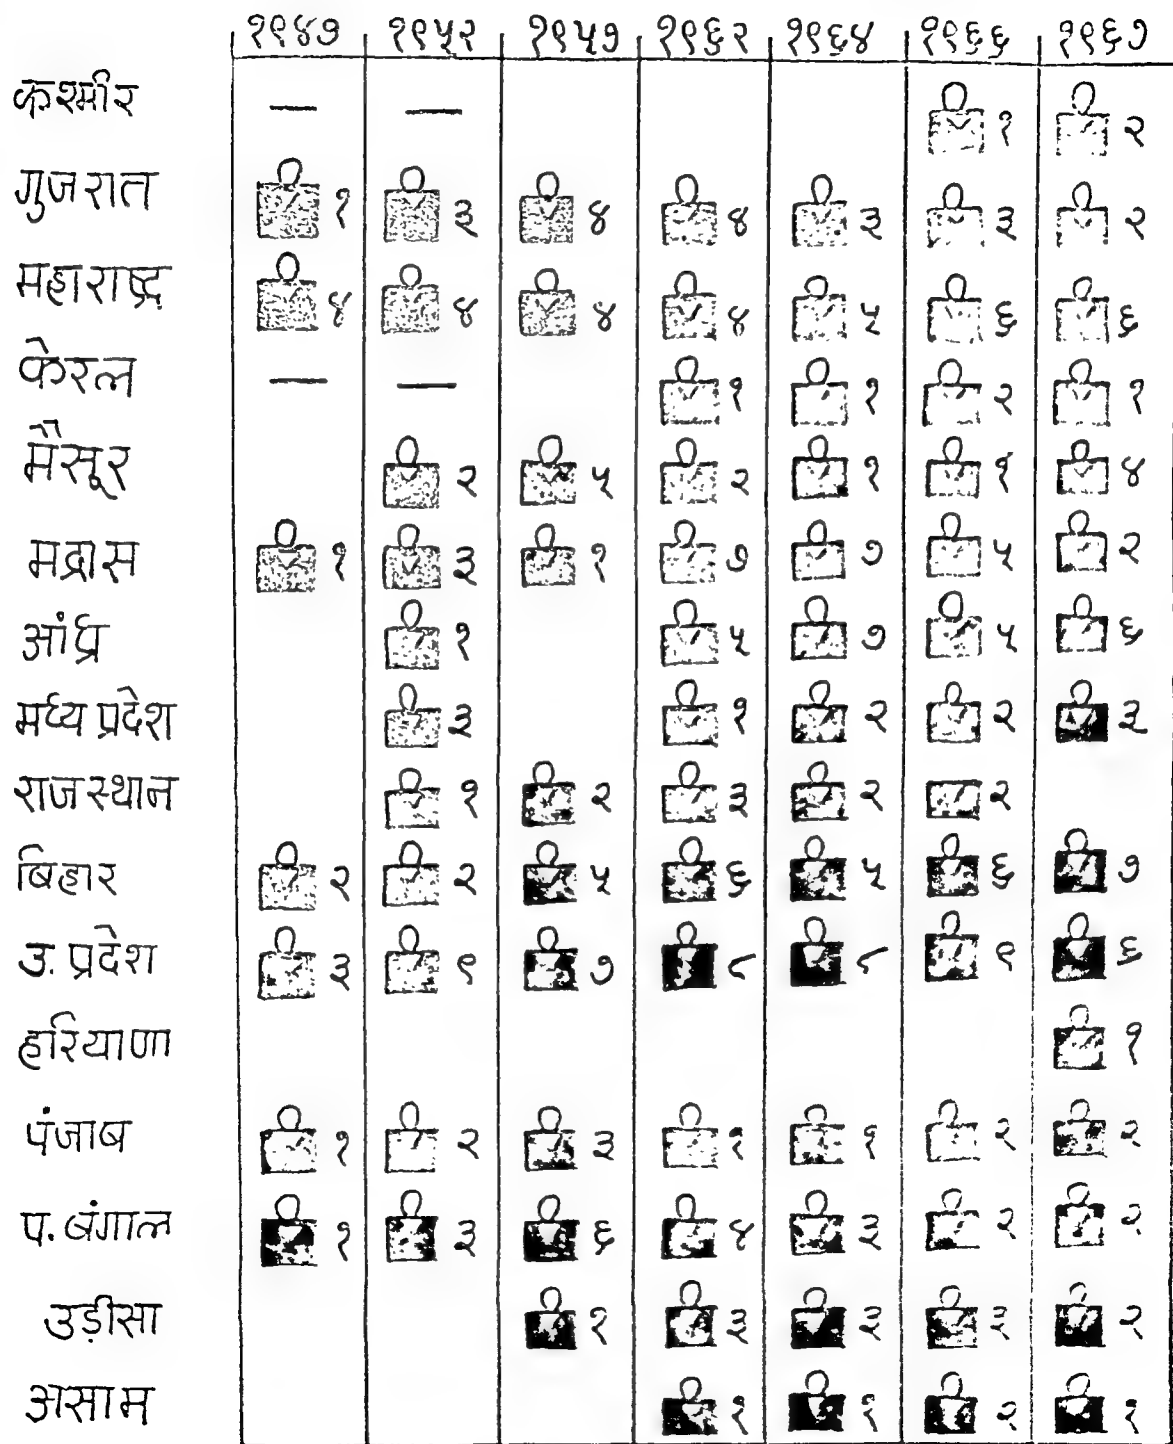 १९४७ १९५२ १९५७ १९६२ १९६४ १९६६ १९६७
कश्मीर — — १ २
गुजरात १ ३ ४ ४ ३ ३ २
महाराष्ट्र ४ ४ ४ ४ ५ ६ ६
केरल — — १ १ २ १
मैसूर २ ५ २ १ १ ४
मद्रास १ ३ १ ७ ७ ५ २
आंध्र १ ५ ७ ५ ६
मध्य प्रदेश ३ १ २ २ ३
राजस्थान १ २ ३ २ २
बिहार २ २ ५ ६ ५ ६ ७
उ. प्रदेश ३ ९ ७ ८ ८ ९ ६
हरियाणा १
पंजाब १ २ ३ १ १ २ २
प. बंगाल १ ३ ६ ४ ३ २ २
उड़ीसा १ ३ ३ ३ २
असाम १ १ २ १